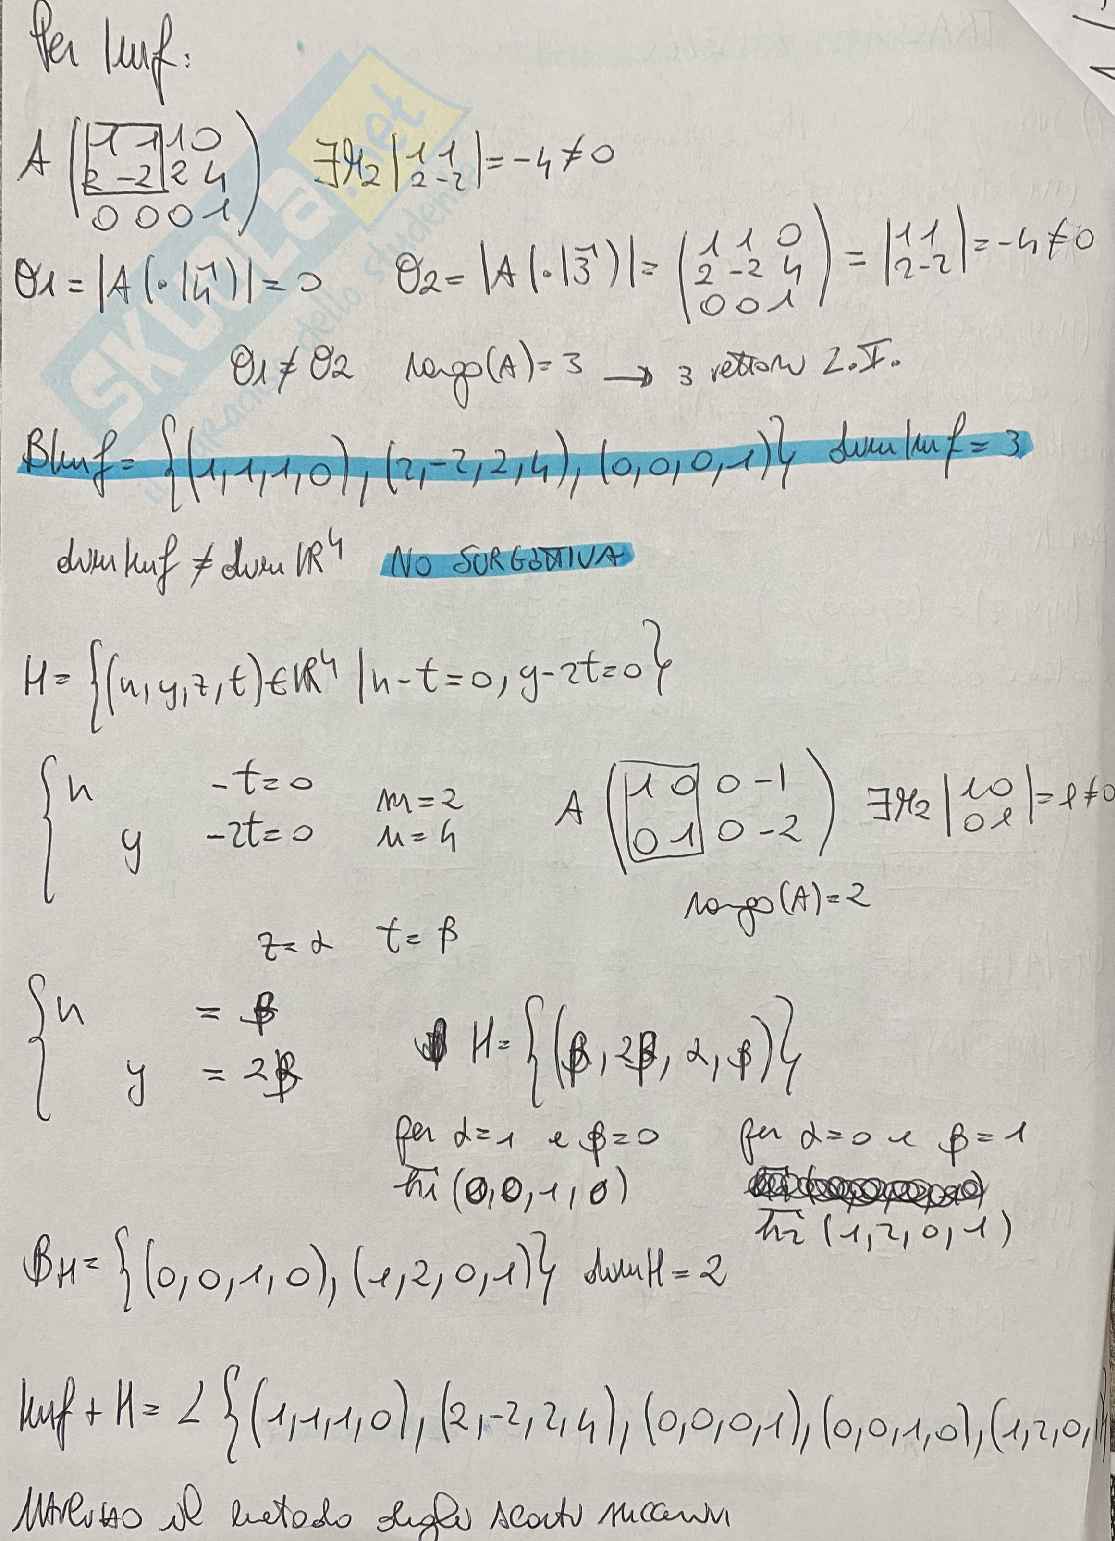 Per Imf:
A (1 1 1 0
2 -2 2 4
0 0 0 1) ∃M2 |1 1
2 -2| = -4 ≠ 0
θ1 = |A(·|4)| = 0 θ2 = |A(·|3)| = (1 1 0
2 -2 4
0 0 1) = |1 1
2 -2| = -4 ≠ 0
θ1 ≠ θ2 rango(A) = 3 → 3 vettori L.I.
BImf = {(1,1,1,0), (2,-2,2,4), (0,0,0,1)} dim Imf = 3
dim Imf ≠ dim ℝ⁴ NO SURGETTIVA
H = {(x,y,z,t) ∈ ℝ⁴ | x-t=0, y-2t=0}
{x -t=0
y -2t=0 m=2
n=4 A (1 0 0 -1
0 1 0 -2) ∃M2 |1 0
0 1| = 1 ≠ 0
rango(A) = 2
z=α t=β
{x = β
y = 2β H = {(β, 2β, α, β)}
per α=1 e β=0 per α=0 e β=1
h1 (0,0,1,0)
h2 (1,2,0,1)
BH = {(0,0,1,0), (1,2,0,1)} dim H = 2
Imf + H = L{(1,1,1,0), (2,-2,2,4), (0,0,0,1), (0,0,1,0), (1,2,0,1
Utilizzo il metodo degli scarti successivi
SKUOLA.net